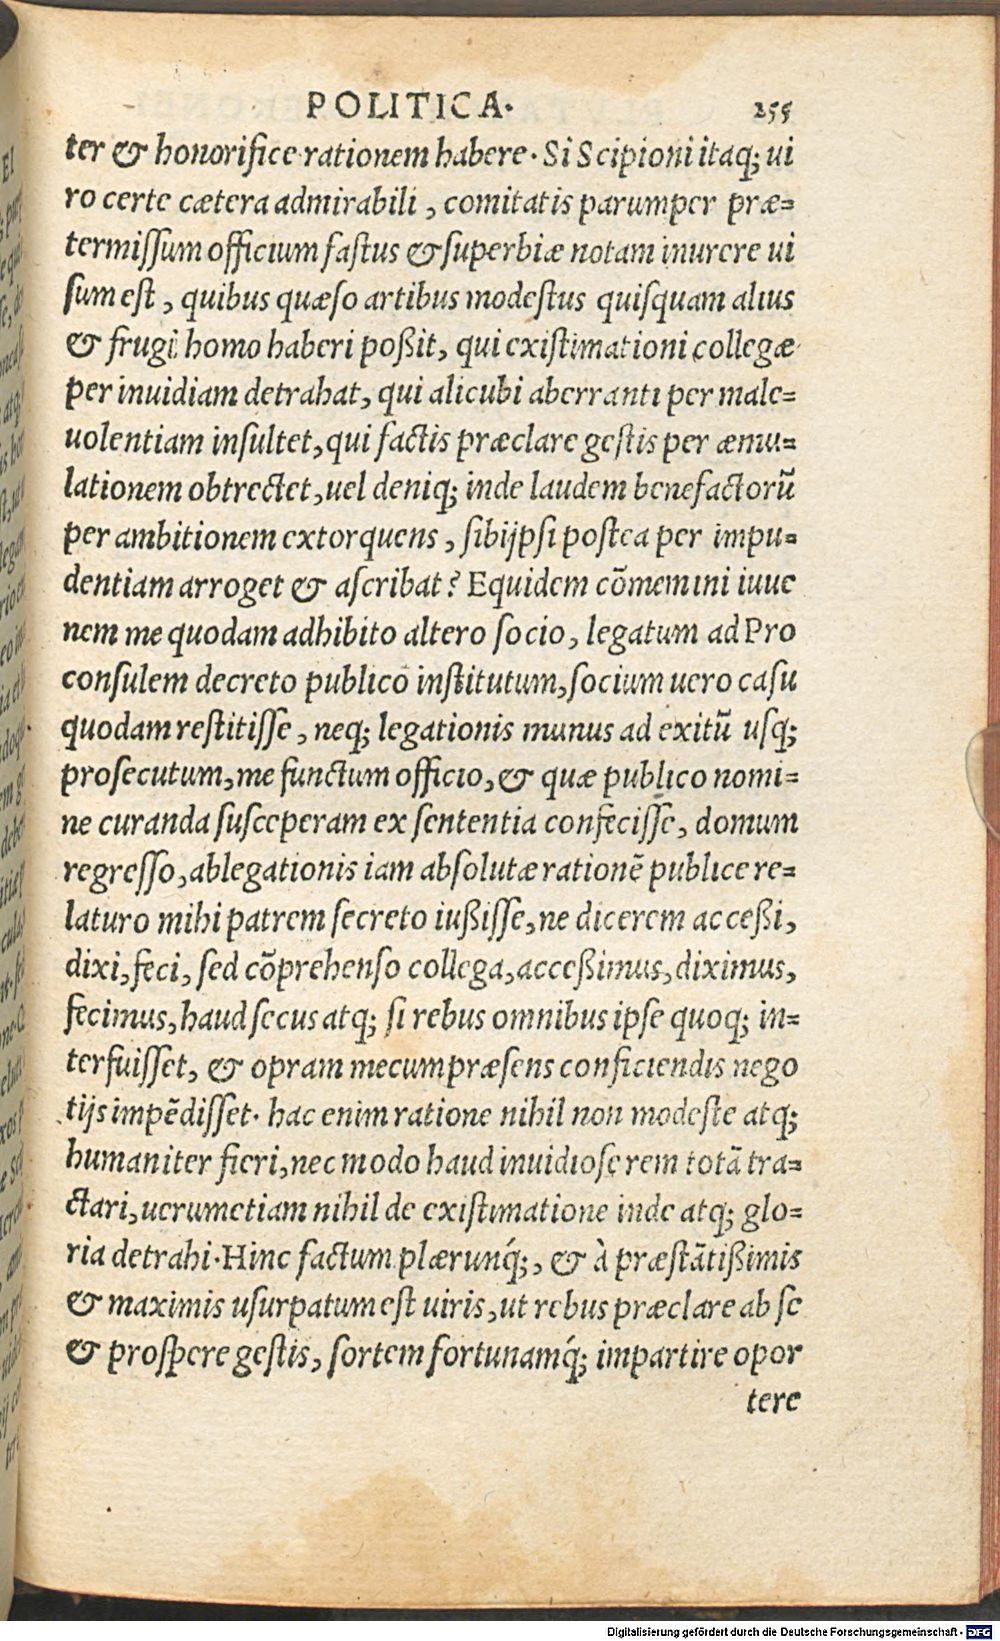 POLITICA. 255
ter & honorifice rationem habere. Si Scipioni itaq; ui
ro certe cætera admirabili, comitatis parumper præ=
termiſſum officium faſtus & ſuperbiæ notam inurere ui
ſum eſt, quibus quæſo artibus modeſtus quiſquam alius
& frugi homo haberi poßit, qui exiſtimationi collegæ
per inuidiam detrahat, qui alicubi aberranti per male=
uolentiam inſultet, qui factis præclare geſtis per æmu=
lationem obtrectet, uel deniq; inde laudem benefactorũ
per ambitionem extorquens, ſibijpſi poſtea per impu=
dentiam arroget & aſcribat? Equidem cõmemini iuue
nem me quodam adhibito altero ſocio, legatum ad Pro
conſulem decreto publico inſtitutum, ſocium uero caſu
quodam reſtitiſſe, neq; legationis munus ad exitũ uſq;
proſecutum, me functum officio, & quæ publico nomi=
ne curanda ſuſceperam ex ſententia confeciſſe, domum
regreſſo, ablegationis iam abſolutæ rationẽ publice re=
laturo mihi patrem ſecreto iußiſſe, ne dicerem acceßi,
dixi, feci, ſed cõprehenſo collega, acceßimus, diximus,
fecimus, haud ſecus atq; ſi rebus omnibus ipſe quoq; in=
terfuiſſet, & opram mecum præſens conficiendis nego
tijs impẽdiſſet. hac enim ratione nihil non modeſte atq;
humaniter fieri, nec modo haud inuidioſe rem totã tra=
ctari, uerumetiam nihil de exiſtimatione inde atq; glo=
ria detrahi. Hinc factum plærunq́;, & à præſtãtißimis
& maximis uſurpatum eſt uiris, ut rebus præclare ab ſe
& proſpere geſtis, ſortem fortunamq́; impartire opor
tere
Digitalisierung gefördert durch die Deutsche Forschungsgemeinschaft - DFG